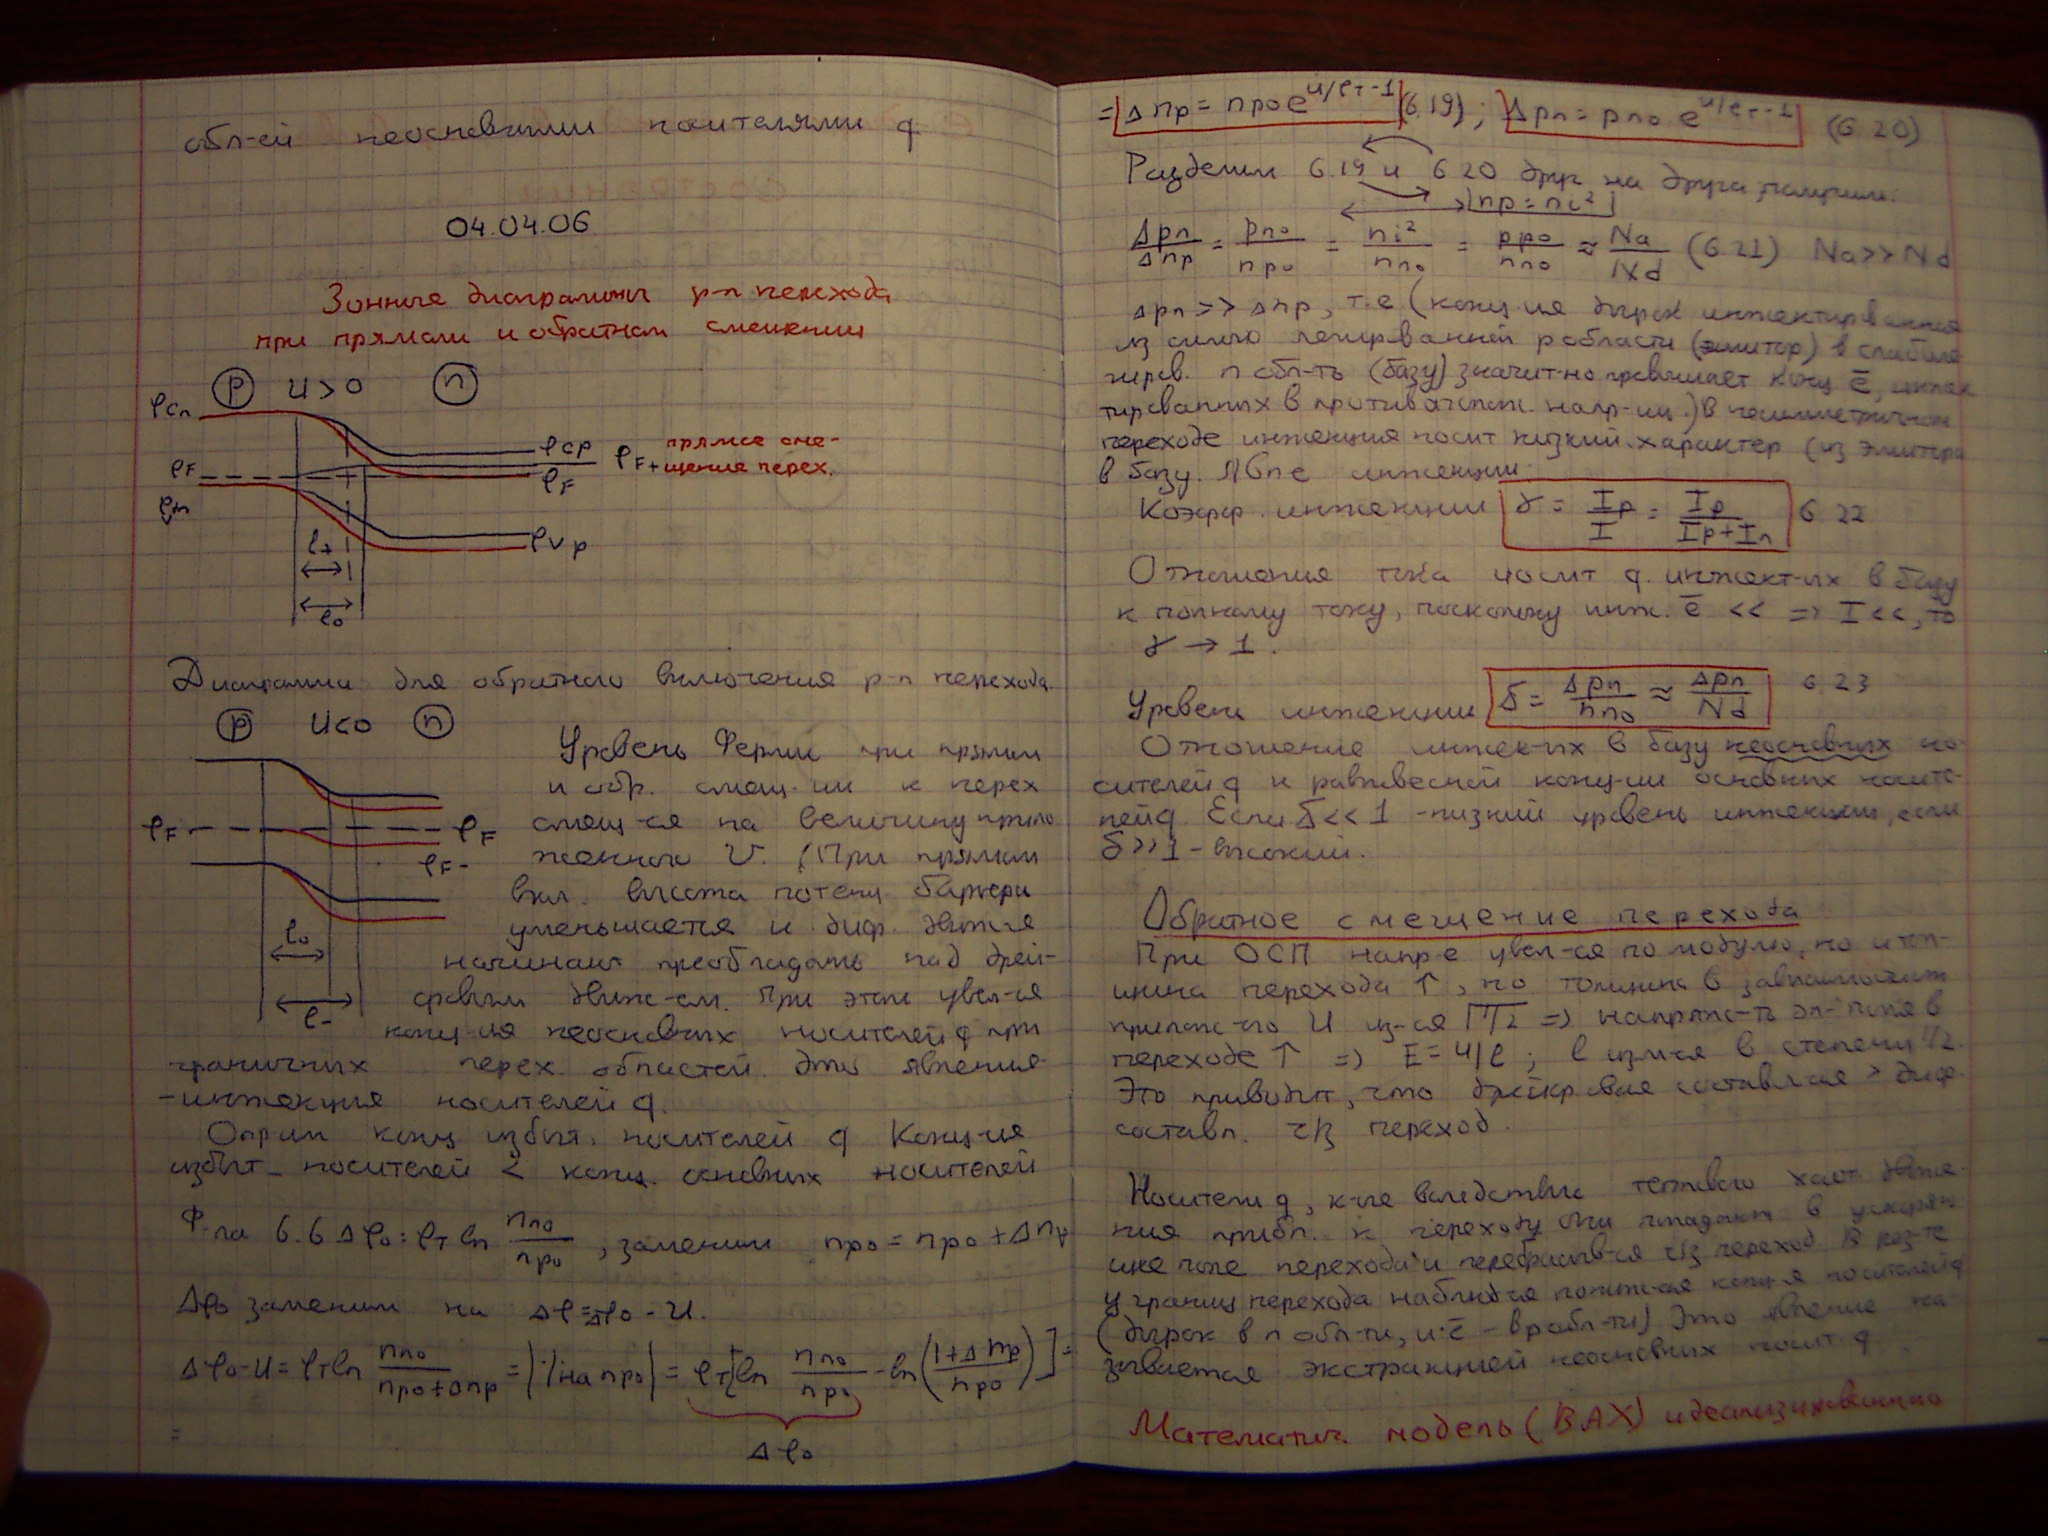 обл-ей неосновными носителями q
04.04.06
Зонные диаграммы p-n перехода
при прямом и обратном смещении
p U>0 n
φcn
φcp
прямое сме-
φF φF+ щение перех.
φF
φvn
φvp
l+
l0
Диаграмма для обратного включения p-n перехода.
p U<0 n
Уровень Ферми при прямом
и обр. смещ-ии к перех
φF φF смещ-ся на величину прило
φF- женного U. (При прямом
вкл. высота потенц барьера
уменьшается и диф. движ-е
l0
начинает преобладать над дрей-
l-
фовым движ-ем. При этом увел-ся
конц-ия неосновных носителей q при
граничных перех. областей. Это явление
-инжекция носителей q.
Оприм конц избыт. носителей q Конц-ия
избыт носителей < конц. основных носителей
Ф-ла 6.6 Δφ0 = φT ln nn0/np0, заменим np0 = np0 + Δnp
Δφ0 заменим на Δφ=Δφ0 - U.
Δφ0-U = φT ln nn0/(np0+Δnp) = |:/на np0| = φT[ln nn0/np0 - ln((1+Δnp)/np0)] =
Δφ0
=
= Δnp = np0 e^(U/φT-1) (6.19); Δpn = pn0 e^(U/φT-1) (6.20)
Разделим 6.19 и 6.20 друг на друга, получим:
|np=ni²|
Δpn/Δnp = pn0/np0 = ni²/nn0 = pp0/nn0 ≈ Na/Nd (6.21) Na>>Nd
Δpn>>Δnp, т.е (конц-ия дырок инжектированная
из сильно легированной p области (эмитор) в слаболе
гиров. n обл-ть (базу) значит-но превышает конц ē, инжек
тированных в противополож. напр-ии.) В несимметричном
переходе инжекция носит низкий характер (из эмитера
в базу. Явле инжекции.
Коэфф. инжекции γ = Ip/I = Ip/(Ip+In) 6.22
Отношения тока носит q. инжект-ых в базу
к полному току, поскольку инж. ē << => I<<, то
γ → 1.
Уровень инжекции δ = Δpn/nn0 ≈ Δpn/Nd 6.23
Отношение инжек-ых в базу неосновных но-
сителей q к равновесной конц-ии основных носите-
лей q Если δ<<1 -низкий уровень инжекции, если
δ>>1 - высокий.
Обратное смещение перехода
При ОСП напр-е увел-ся по модулю, но и тол-
щина перехода ↑, но толщина в зависимости
прилож-го U из-ся => напряж-ть эл-поля в
переходе ↑ => E=U/l; l изм-ся в степени 1/2.
Это приводит, что дрейфовая составл-ая > диф.
составл. ч/з переход.
Носители q, к-ые вследствие теплового хаот. движе-
ния прибл. к переходу они попадают в ускоряю
щее поле перехода и перебрасыв-ся ч/з переход. В рез-те
у границ перехода наблюд-ся пониж-ая конц-я носителей q
(дырок в n обл-ти, и ē - в p обл-ти) Это явление на
зывается экстракцией неосновных носит. q.
Математич. модель (ВАХ) идеализированного